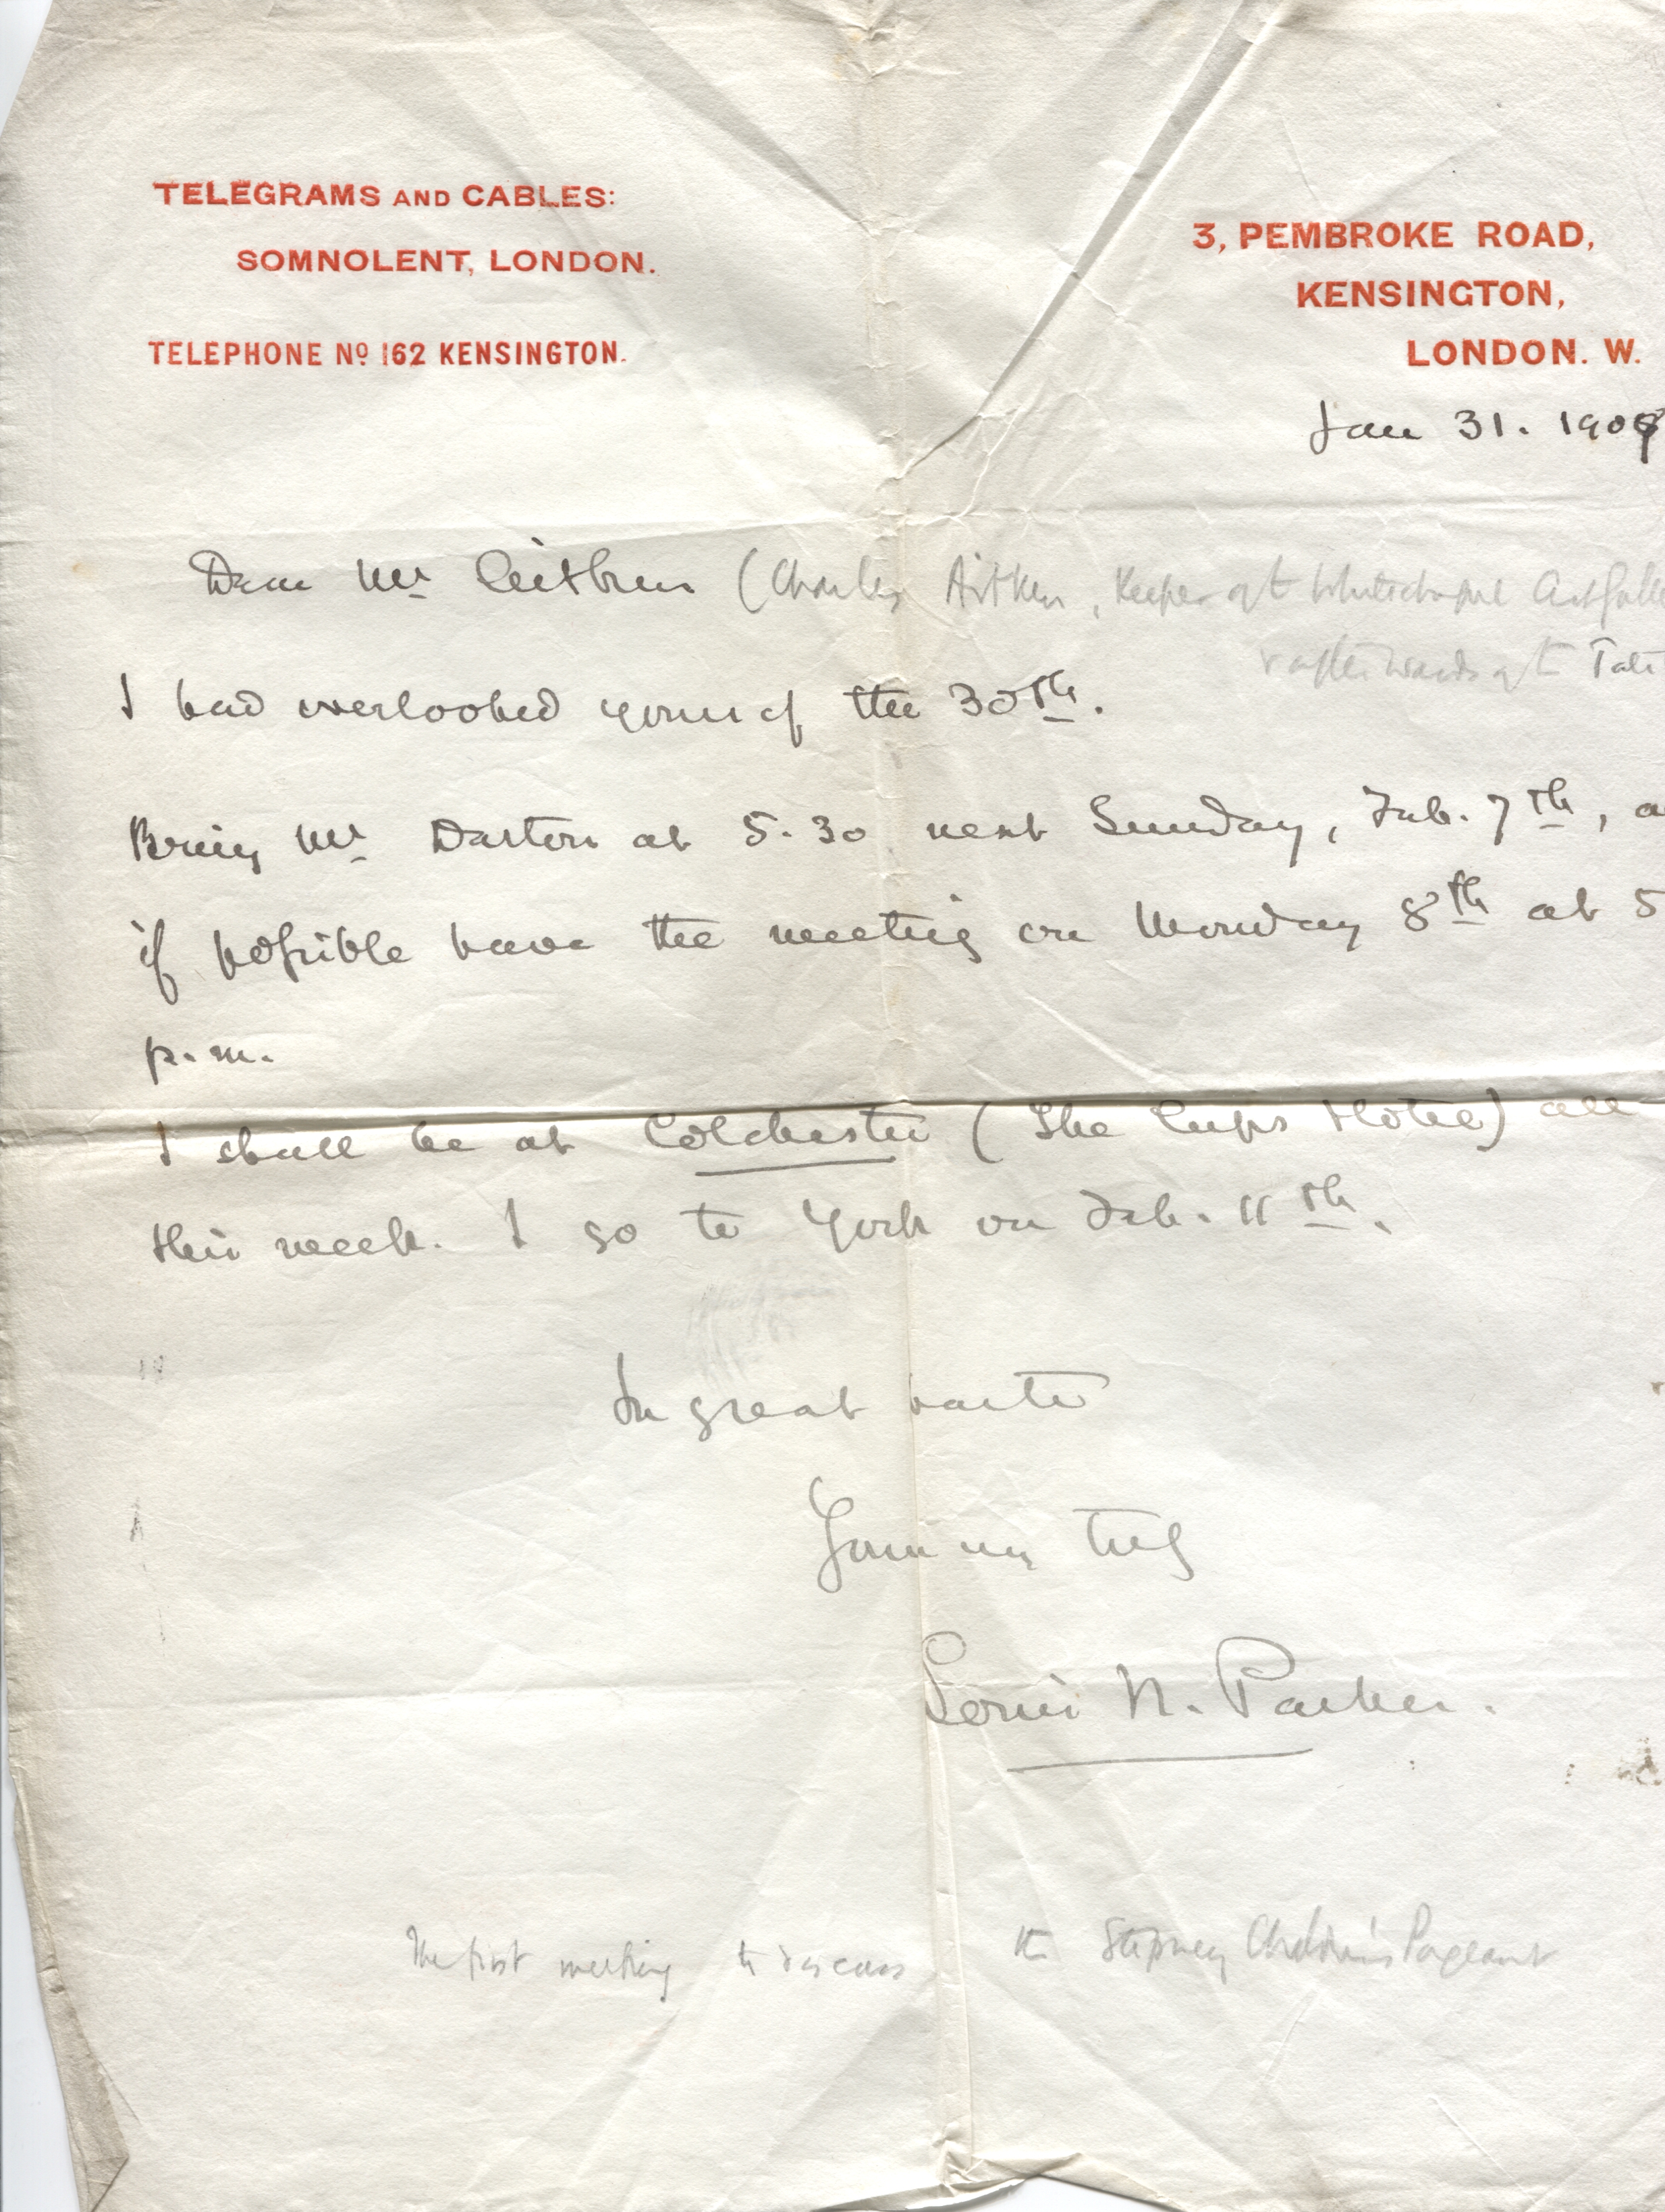 TELEGRAMS AND CABLES:
SOMNOLENT, LONDON.
TELEPHONE Nº 162 KENSINGTON.
3, PEMBROKE ROAD,
KENSINGTON,
LONDON. W.
Jan 31. 1909
Dear Mr Aitken (Charles Aitken, Keeper of t Whitechapel Art Galle
& afterwards of t Tate
I had overlooked yours of the 30th.
Bring Mr Darton at 5.30 next Sunday, Feb. 7th, a
if possible have the meeting on Monday 8th at 5
p.m.
I shall be at Colchester (The Cups Hotel) all
this week. I go to York on Feb. 11th.
In great haste
Yours very truly
Louis N. Parker.
The first meeting to discuss the Stepney Children's Pageant